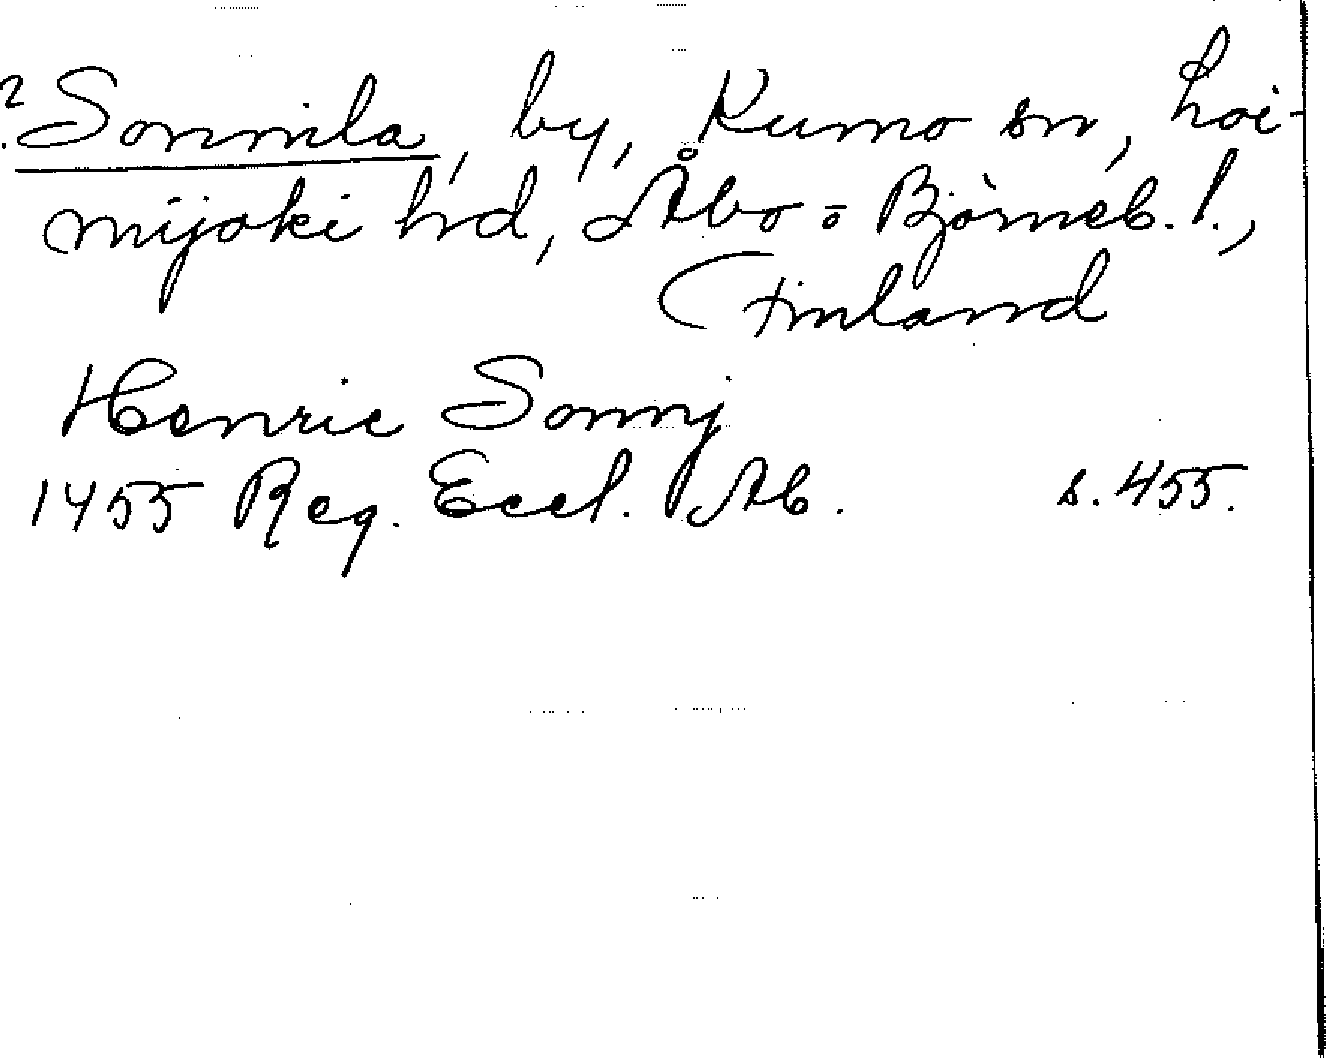 2. Sonnila, by, Kumo sn, Loi-
mijoki hd, Åbo o Björneb. l.,
Finland
Henric Sonnj
1455 Reg. Eccl. Ab. s. 455.